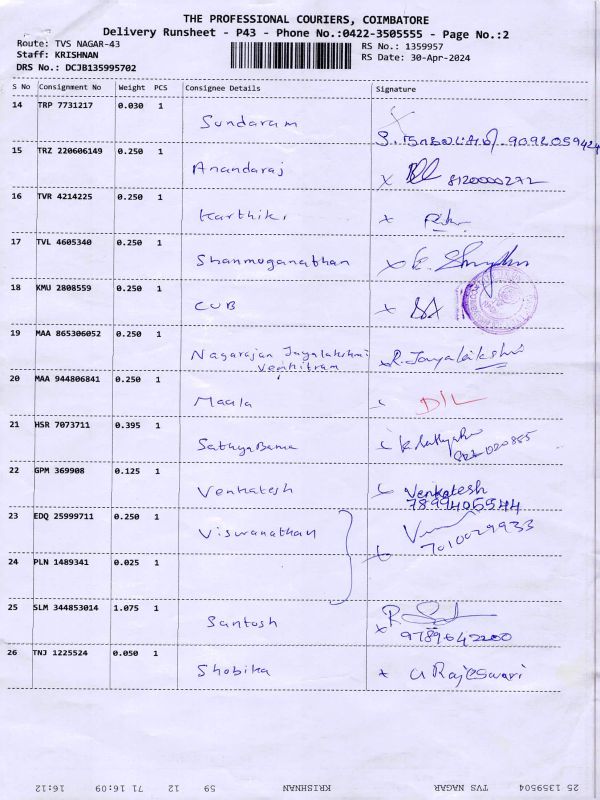 THE PROFESSIONAL COURIERS, COIMBATORE
Delivery Runsheet - P43 - Phone No.:0422-3505555 - Page No.:2
Route: TVS NAGAR-43
Staff: KRISHNAN
DRS No.: DCJB135995702
RS No.: 1359957
RS Date: 30-Apr-2024
S No Consignment No Weight PCS Consignee Details Signature
14 TRP 7731217 0.030 1 Sundaram
15 TRZ 220606149 0.250 1 Anandaraj x 8120000272
16 TVR 4214225 0.250 1 Karthik. x
17 TVL 4605340 0.250 1 Shanmuganathan x
18 KMU 2808559 0.250 1 CUB x
19 MAA 865306052 0.250 1 Nagarajan Jayalakshmi x R. Jayalakshmi
Venkitram
20 MAA 944806841 0.250 1 Maala D/L
21 HSR 7073711 0.395 1 SathyaBama
22 GPM 369908 0.125 1 Venkatesh Venkatesh
7899405544
23 EDQ 25999711 0.250 1 Viswanathan
7010029933
24 PLN 1489341 0.025 1
25 SLM 344853014 1.075 1 Santosh x
9789642200
26 TNJ 1225524 0.050 1 Shobika x G Rajeswari
25 1359504 TVS NAGAR KRISHNAN 59 12 71 16:09 16:12